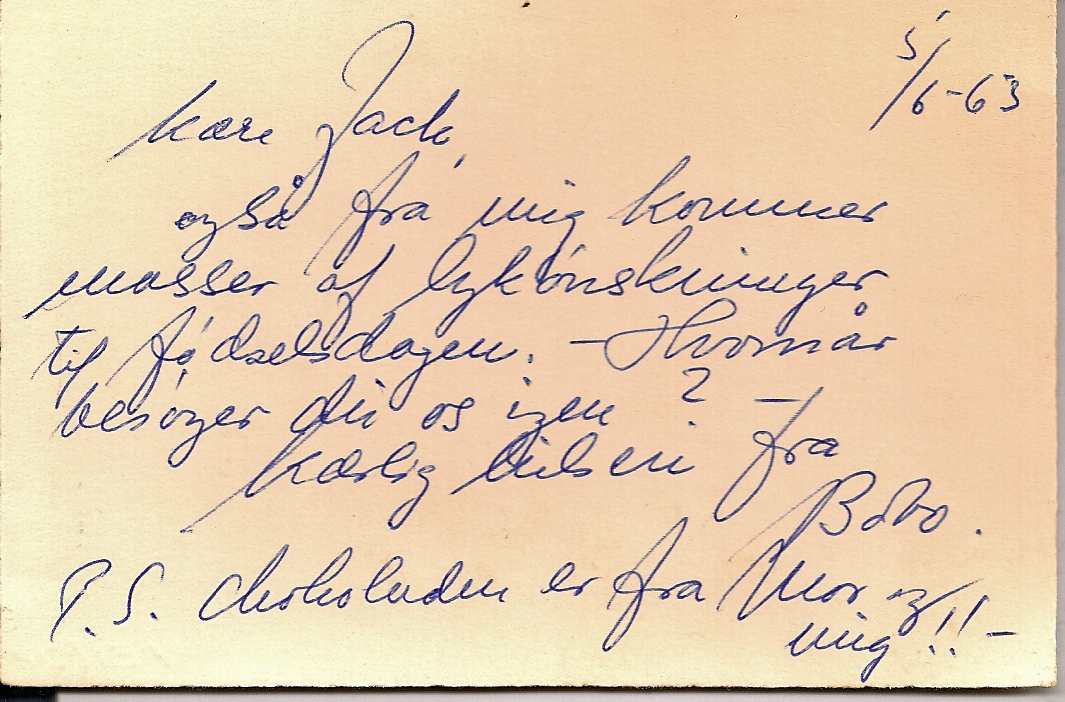 5/6-63
kære Jack,
også fra mig kommer
masser af lykønskninger
til fødselsdagen. – Hvornår
besøger du os igen ? –
Kærlig hilsen fra
Bobo.
P.S. chokoladen er fra Mor og
mig!! –